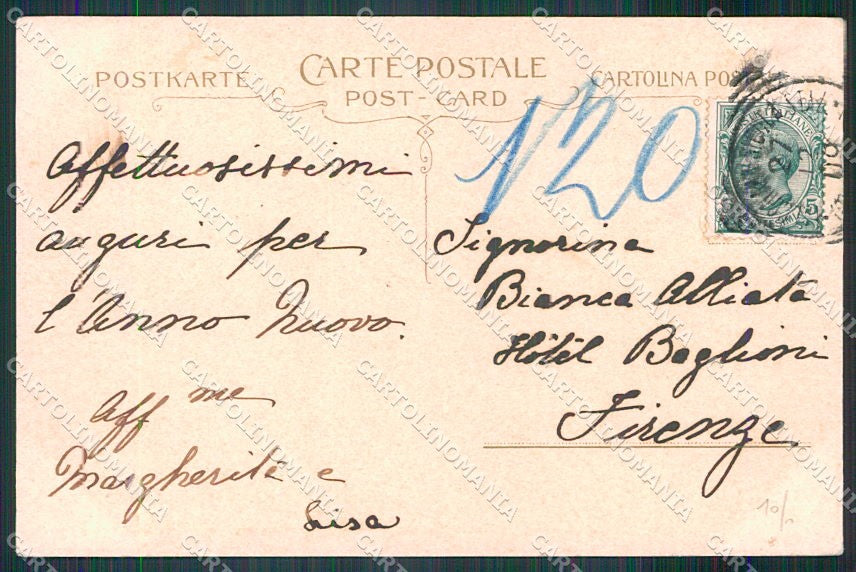 POSTKARTE
CARTE POSTALE
CARTOLINA POST
POST-CARD
120
Affettuosissimi
auguri per
l'Anno Nuovo.
Aff me
Margherita e
Lisa
Signorina
Bianca Alliata
Hôtel Baglioni
Firenze
5
10/
CARTOLINOMANIA